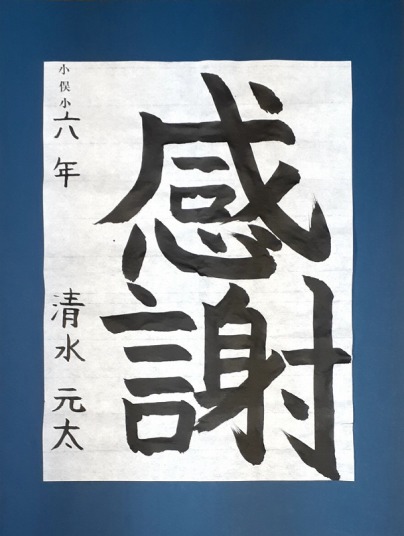 感謝
小俣小
六年 清水元太